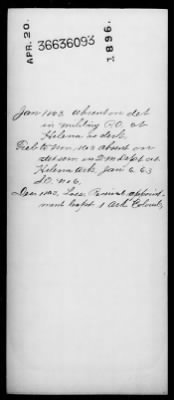 APR. 20.
36636093
1896.
Jan 1863 absent on det
in military P.O. at
Helena as clerk.
Feb to Nov, 1863 absent on
det serv in 2nd
Helena Ark Jan 6. 63
S.O. No 6.
Dec 1863,
ment Capt 1 Ark Colored